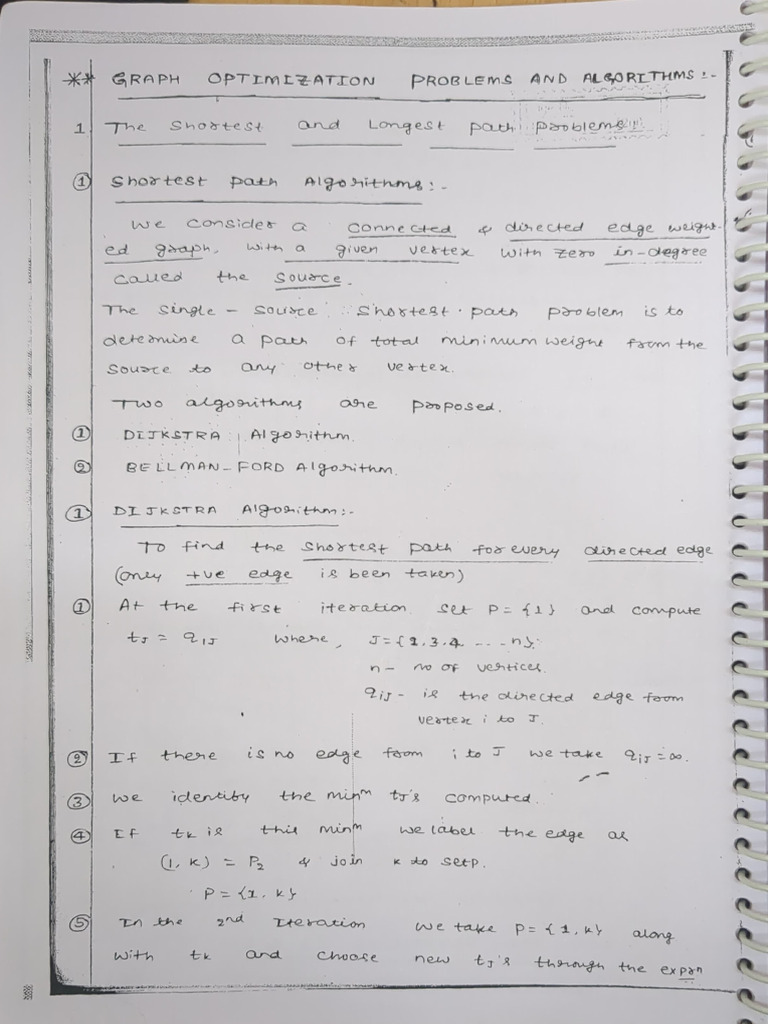 ** GRAPH OPTIMIZATION PROBLEMS AND ALGORITHMS:-
1 The Shortest and Longest path problems:
① Shortest path Algorithms:-
We consider a connected & directed edge weight-
ed graph, with a given vertex with zero in-degree
called the source.
The single - source shortest path problem is to
determine a path of total minimum weight from the
source to any other vertex.
Two algorithms are proposed.
① DIJKSTRA Algorithm.
② BELLMAN-FORD Algorithm.
① DIJKSTRA Algorithm:-
To find the shortest path for every directed edge
(only +ve edge is been taken)
① At the first iteration set P = {1} and compute
tJ = q1J where, J = {2,3,4 .... n}.
n - no of vertices.
qiJ - is the directed edge from
vertex i to J.
② If there is no edge from i to J we take qiJ = ∞.
③ We identity the minm tJ's computed.
④ If tk is this minm we label the edge as
(1, k) = P2 & join k to set P.
P = {1, k}
⑤ In the 2nd Iteration we take P = {1, k} along
with tk and choose new tJ's through the expn